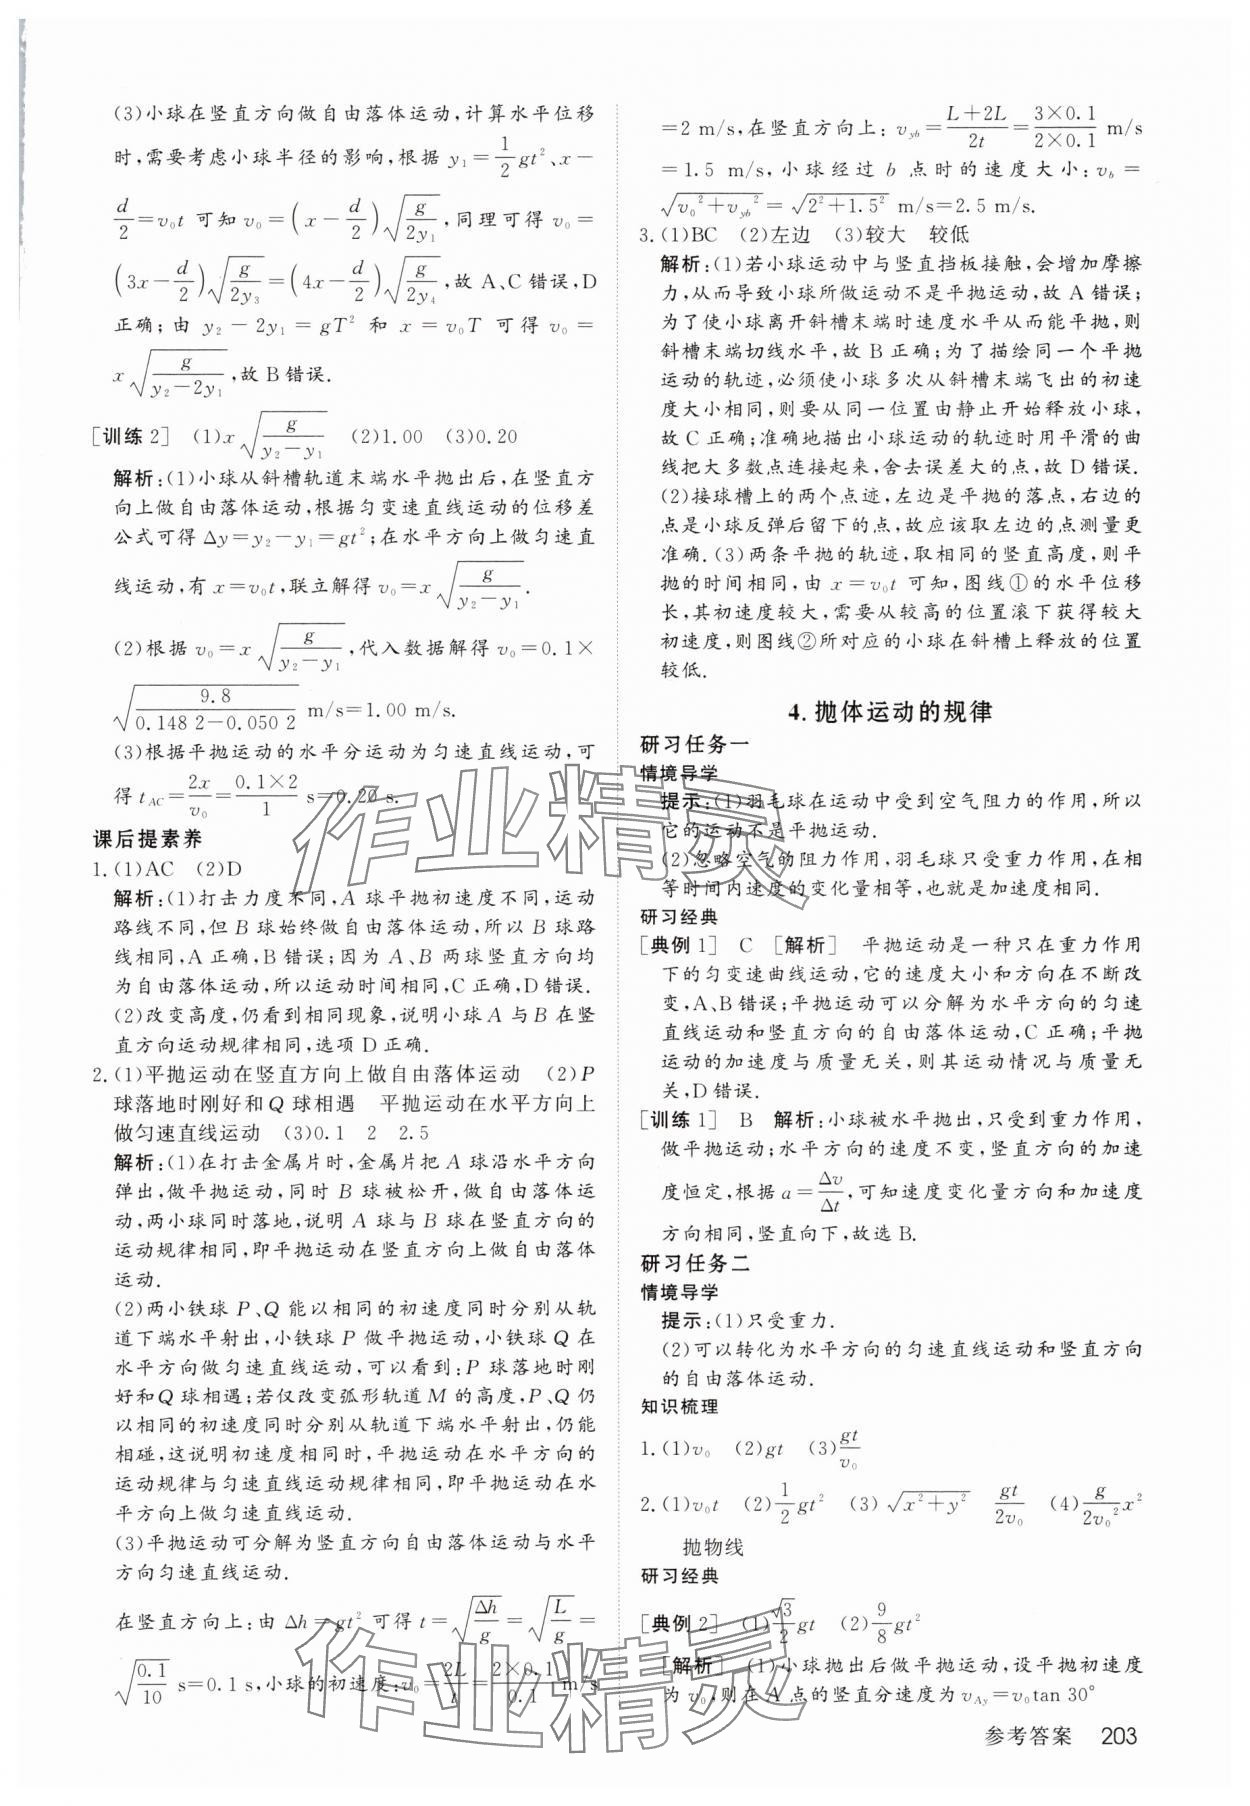 (3)小球在竖直方向做自由落体运动,计算水平位移
时,需要考虑小球半径的影响,根据 y₁=\frac{1}{2}gt²、x−
\frac{d}{2}=v₀t 可知 v₀=(x−\frac{d}{2})\sqrt{\frac{g}{2y₁}},同理可得 v₀=
(3x−\frac{d}{2})\sqrt{\frac{g}{2y₃}}=(4x−\frac{d}{2})\sqrt{\frac{g}{2y₄}},故 A、C 错误,D
正确;由 y₂−2y₁=gT² 和 x=v₀T 可得 v₀=
x\sqrt{\frac{g}{y₂−2y₁}},故 B 错误.
[训练 2] (1)x\sqrt{\frac{g}{y₂−y₁}} (2)1.00 (3)0.20
解析:(1)小球从斜槽轨道末端水平抛出后,在竖直方
向上做自由落体运动,根据匀变速直线运动的位移差
公式可得 Δy=y₂−y₁=gt²;在水平方向上做匀速直
线运动,有 x=v₀t,联立解得 v₀=x\sqrt{\frac{g}{y₂−y₁}}.
(2)根据 v₀=x\sqrt{\frac{g}{y₂−y₁}},代入数据解得 v₀=0.1×
\sqrt{\frac{9.8}{0.148 2−0.050 2}} m/s=1.00 m/s.
(3)根据平抛运动的水平分运动为匀速直线运动,可
得 t_{AC}=\frac{2x}{v₀}=\frac{0.1×2}{1} s=0.20 s.
课后提素养
1.(1)AC (2)D
解析:(1)打击力度不同,A 球平抛初速度不同,运动
路线不同,但 B 球始终做自由落体运动,所以 B 球路
线相同,A 正确,B 错误;因为 A、B 两球竖直方向均
为自由落体运动,所以运动时间相同,C 正确,D 错误.
(2)改变高度,仍看到相同现象,说明小球 A 与 B 在竖
直方向运动规律相同,选项 D 正确.
2.(1)平抛运动在竖直方向上做自由落体运动 (2)P
球落地时刚好和 Q 球相遇 平抛运动在水平方向上
做匀速直线运动 (3)0.1 2 2.5
解析:(1)在打击金属片时,金属片把 A 球沿水平方向
弹出,做平抛运动,同时 B 球被松开,做自由落体运
动,两小球同时落地,说明 A 球与 B 球在竖直方向的
运动规律相同,即平抛运动在竖直方向上做自由落体
运动.
(2)两小铁球 P、Q 能以相同的初速度同时分别从轨
道下端水平射出,小铁球 P 做平抛运动,小铁球 Q 在
水平方向做匀速直线运动,可以看到:P 球落地时刚
好和 Q 球相遇;若仅改变弧形轨道 M 的高度,P、Q 仍
以相同的初速度同时分别从轨道下端水平射出,仍能
相碰,这说明初速度相同时,平抛运动在水平方向的
运动规律与匀速直线运动规律相同,即平抛运动在水
平方向上做匀速直线运动.
(3)平抛运动可分解为竖直方向自由落体运动与水平
方向匀速直线运动.
在竖直方向上:由 Δh=gt² 可得 t=\sqrt{\frac{Δh}{g}}=\sqrt{\frac{L}{g}}=
\sqrt{\frac{0.1}{10}} s=0.1 s,小球的初速度:v₀=\frac{2L}{t}=\frac{2×0.1}{0.1} m/s
=2 m/s,在竖直方向上:v_{yb}=\frac{L+2L}{2t}=\frac{3×0.1}{2×0.1} m/s
=1.5 m/s,小球经过 b 点时的速度大小:v_b=
\sqrt{v₀²+v_{yb}²}=\sqrt{2²+1.5²} m/s=2.5 m/s.
3.(1)BC (2)左边 (3)较大 较低
解析:(1)若小球运动中与竖直挡板接触,会增加摩擦
力,从而导致小球所做运动不是平抛运动,故 A 错误;
为了使小球离开斜槽末端时速度水平从而能平抛,则
斜槽末端切线水平,故 B 正确;为了描绘同一个平抛
运动的轨迹,必须使小球多次从斜槽末端飞出的初速
度大小相同,则要从同一位置由静止开始释放小球,
故 C 正确;准确地描出小球运动的轨迹时用平滑的曲
线把大多数点连接起来,舍去误差大的点,故 D 错误.
(2)接球槽上的两个点迹,左边是平抛的落点,右边的
点是小球反弹后留下的点,故应该取左边的点测量更
准确.(3)两条平抛的轨迹,取相同的竖直高度,则平
抛的时间相同,由 x=v₀t 可知,图线①的水平位移
长,其初速度较大,需要从较高的位置滚下获得较大
初速度,则图线②所对应的小球在斜槽上释放的位置
较低.
4.抛体运动的规律
研习任务一
情境导学
提示:(1)羽毛球在运动中受到空气阻力的作用,所以
它的运动不是平抛运动.
(2)忽略空气的阻力作用,羽毛球只受重力作用,在相
等时间内速度的变化量相等,也就是加速度相同.
研习经典
[典例 1] C [解析] 平抛运动是一种只在重力作用
下的匀变速曲线运动,它的速度大小和方向在不断改
变,A、B 错误;平抛运动可以分解为水平方向的匀速
直线运动和竖直方向的自由落体运动,C 正确;平抛
运动的加速度与质量无关,则其运动情况与质量无
关,D 错误.
[训练 1] B 解析:小球被水平抛出,只受到重力作用,
做平抛运动;水平方向的速度不变,竖直方向的加速
度恒定,根据 a=\frac{Δv}{Δt},可知速度变化量方向和加速度
方向相同,竖直向下,故选 B.
研习任务二
情境导学
提示:(1)只受重力.
(2)可以转化为水平方向的匀速直线运动和竖直方向
的自由落体运动.
知识梳理
1.(1)v₀ (2)gt (3)\frac{gt}{v₀}
2.(1)v₀t (2)\frac{1}{2}gt² (3)\sqrt{x²+y²} \frac{gt}{2v₀} (4)\frac{g}{2v₀²}x²
抛物线
研习经典
[典例 2] (1)\frac{\sqrt{3}}{2}gt (2)\frac{9}{8}gt²
[解析] (1)小球抛出后做平抛运动,设平抛初速度
为 v₀,则在 A 点的竖直分速度为 v_{Ay}=v₀tan 30°
参考答案 203
作业精灵
作业精灵